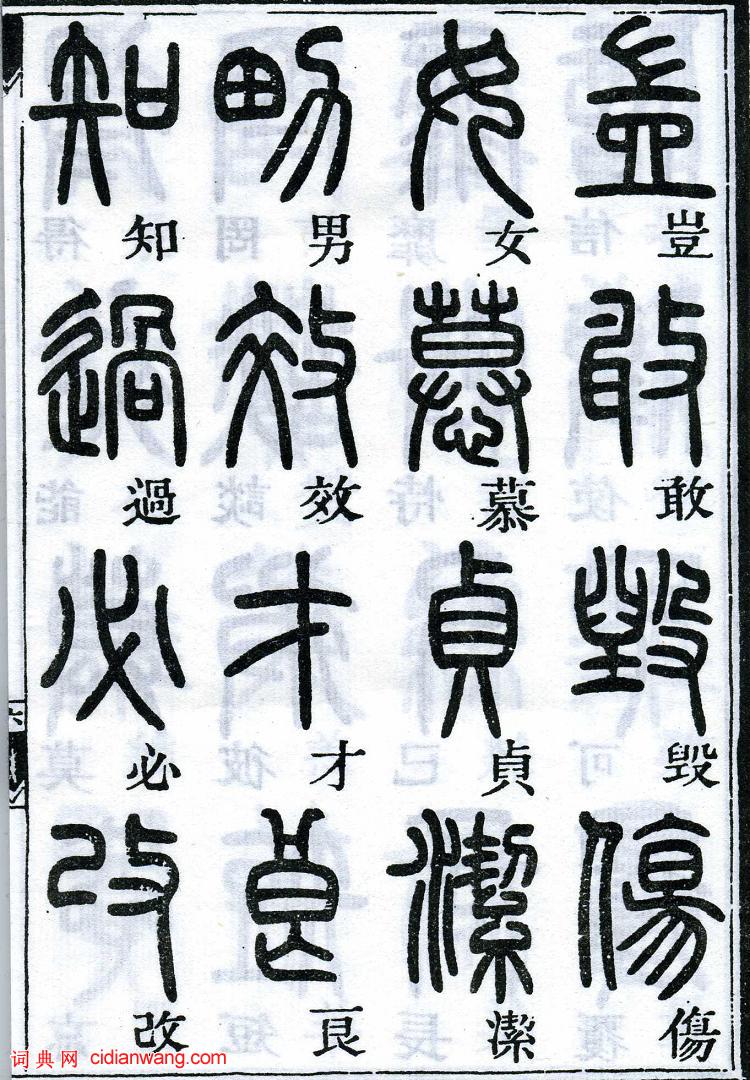 豈敢毀傷
女慕貞潔
男效才良
知過必改
六
词典网 cidianwang.com